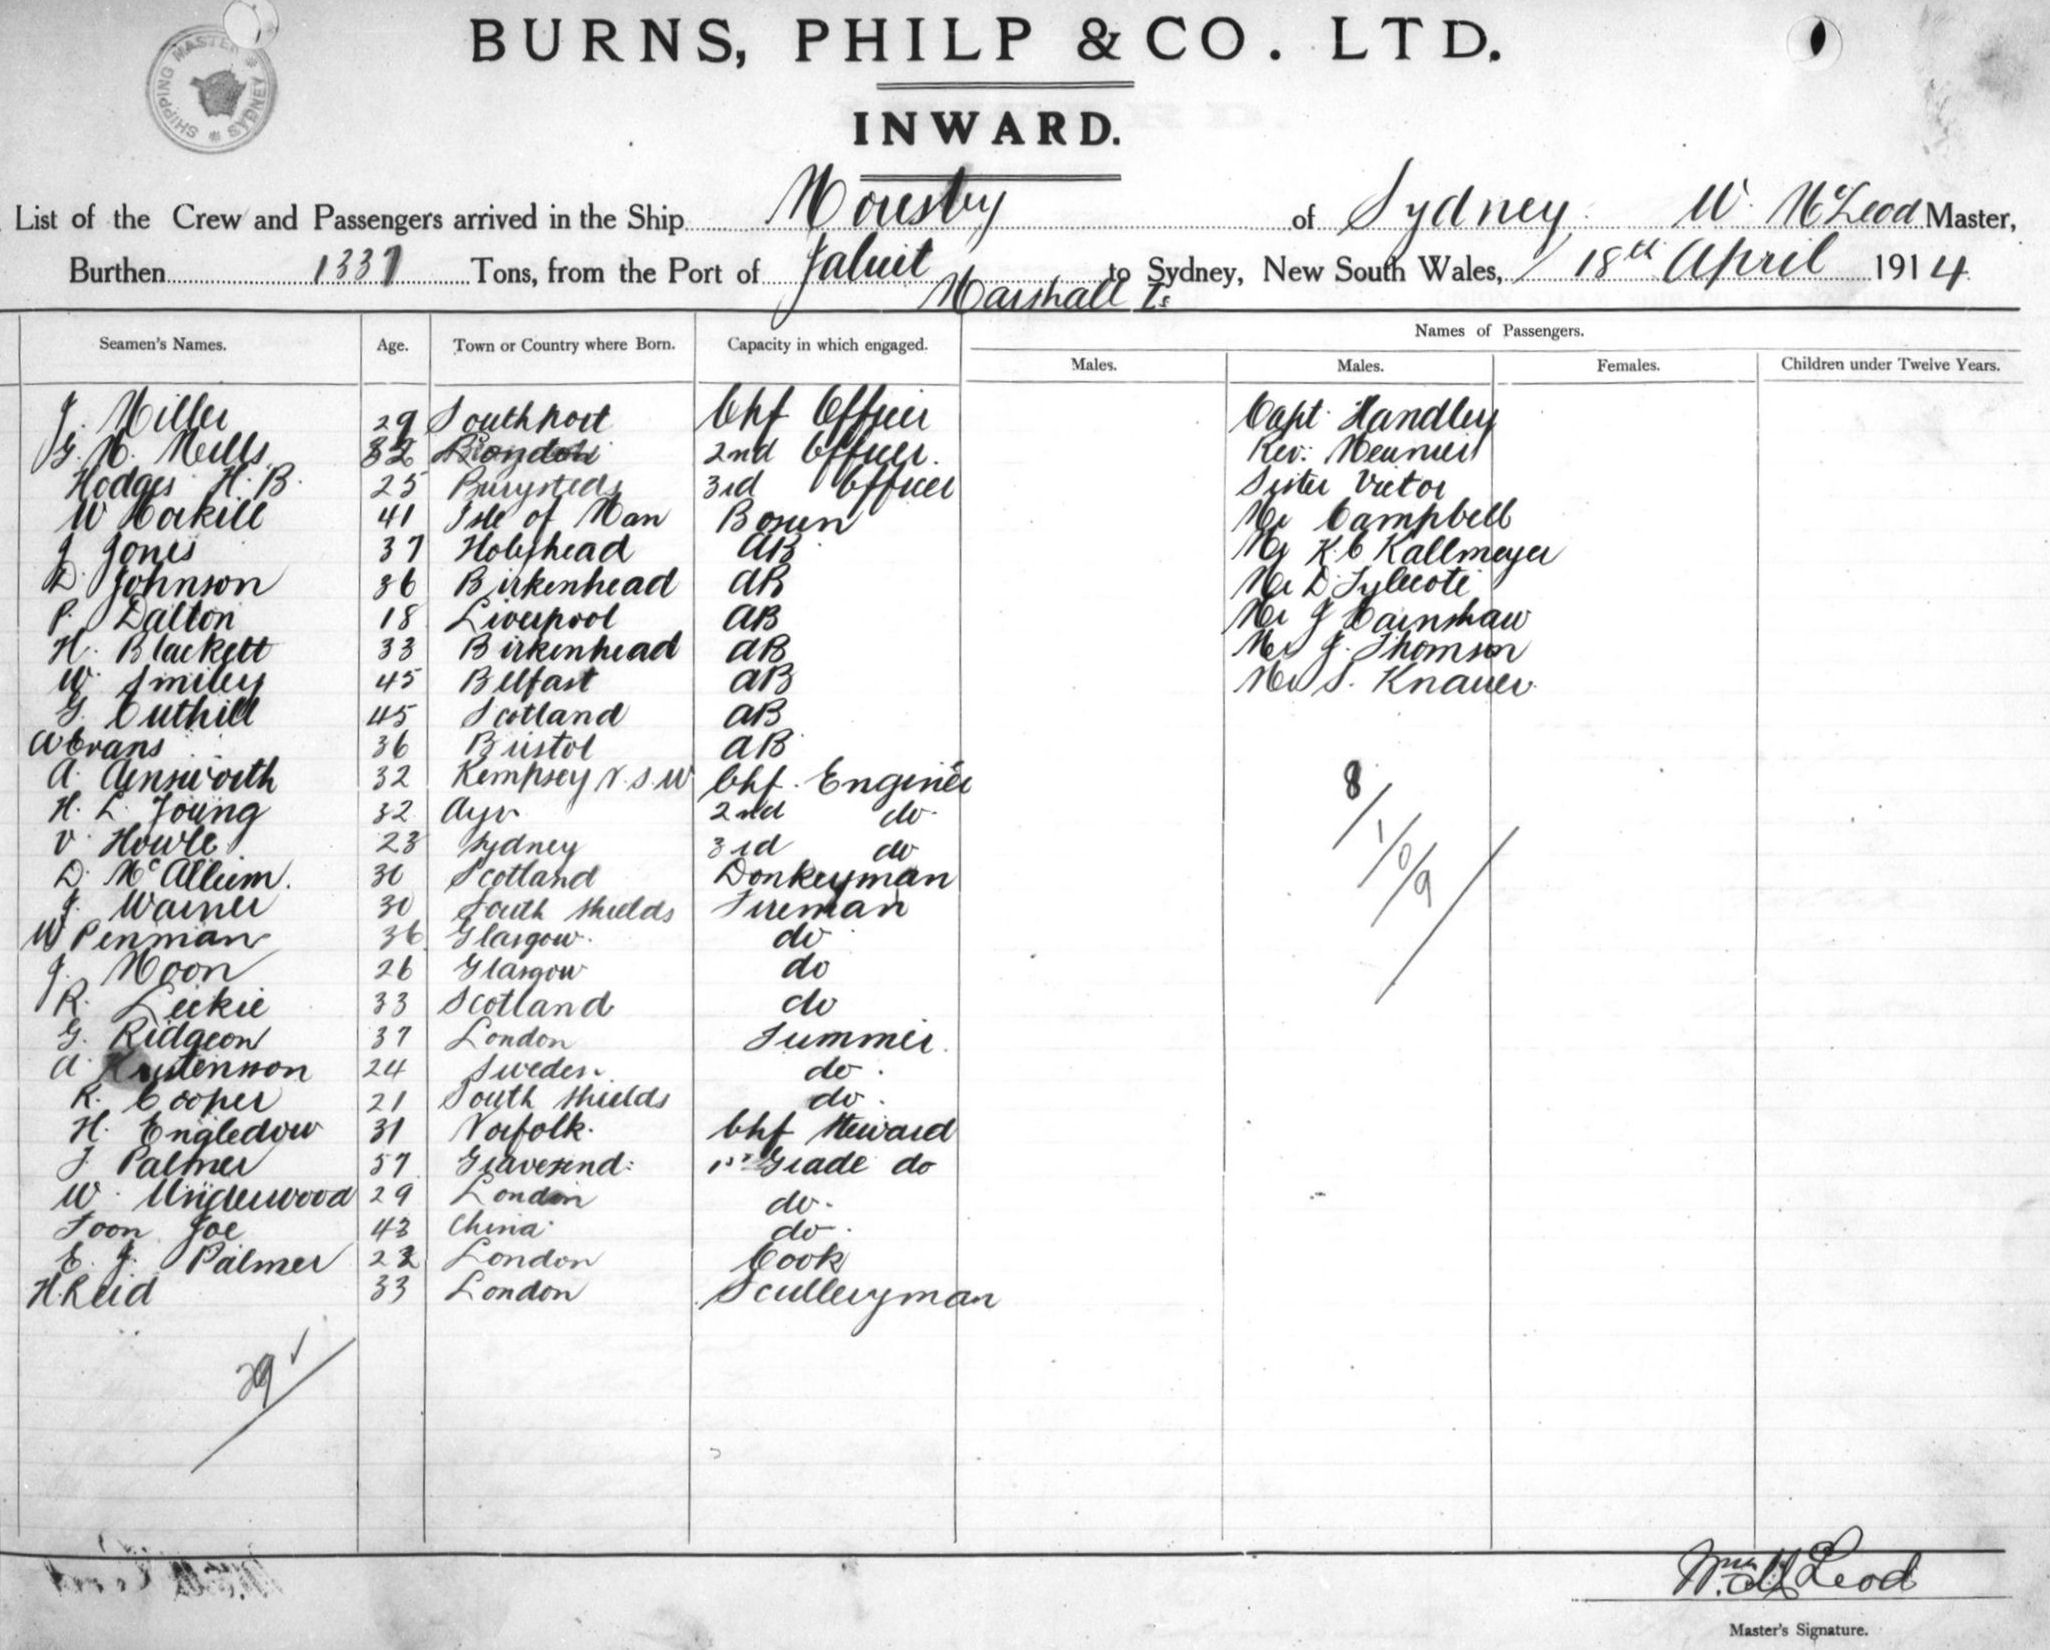 SHIPPING MASTER SYDNEY
BURNS, PHILP & CO. LTD.
INWARD.
List of the Crew and Passengers arrived in the Ship Moresby of Sydney W. McLeod Master,
Burthen 1337 Tons, from the Port of Jaluit to Sydney, New South Wales, 18th April 1914
Marshall Is
Names of Passengers.
Seamen's Names. Age. Town or Country where Born. Capacity in which engaged. Males. Males. Females. Children under Twelve Years.
J. Miller 29 Southport Chf Officer Capt. Handley
G. M. Mells 32 2nd Officer. Rev: Meunier
Hodges H. B. 25 3rd Officer Sister Victor
W 41 Isle of Man Bosun Mr Campbell
J Jones 37 Holyhead AB Mr K C Kallmeyer
D. Johnson 36 Birkenhead AB Mr D.
P. Dalton 18 Liverpool AB Mr J
H. Blackett 33 Birkenhead AB Mr J. Thomson
W. Smiley 45 Belfast AB Mr S. Knauer.
G. Cuthill 45 Scotland AB
W Evans 36 Bristol AB
A. Ainsworth 32 Kempsey N.S.W Chf. Engineer
H. L. Young 32 Ayr 2nd do
V. Howle 23 Sydney 3rd do
D. McAllum. 30 Scotland Donkeyman
J. Warner 30 South Shields Fireman
W Penman 36 Glasgow. do
J. Moon 26 Glasgow do
R. Leckie 33 Scotland do
G. Ridgeon 37 London Trimmer.
A. 24 Sweden. do.
R. Cooper 21 South Shields do.
H. Engledow 31 Norfolk. Chf Steward
J Palmer 57 Gravesend: 1st Grade do
W. Underwood 29 London do.
Toon Joe 43 China do.
E. J. Palmer 22 London Cook
H. Reid 33 London Sculleryman
8/1/0/9
29
Wm McLeod
Master's Signature.